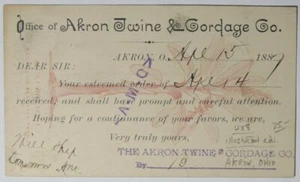 Office of Akron Twine & Cordage Co.
AKRON, O. Apl 15 1889
DEAR SIR:
Your esteemed order of Apl 14
received, and shall have prompt and careful attention.
Hoping for a continuance of your favors, we are,
Very truly yours,
Will ship
THE AKRON TWINE & CORDAGE CO.
By
AKRON, OHIO